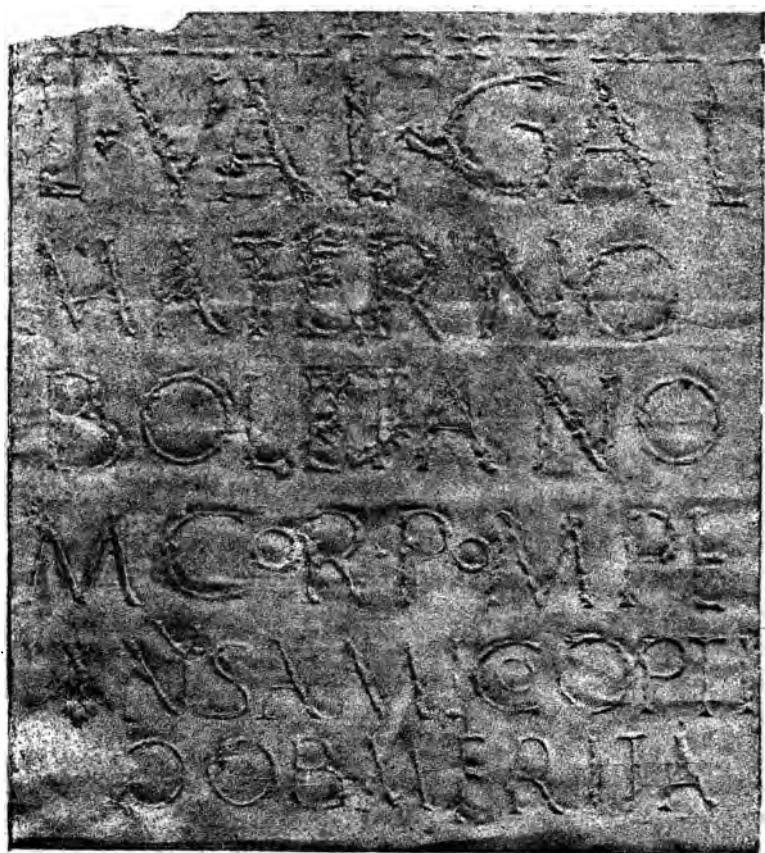 L VAL GAL
MATERNO
BOLETANO
M COR POMPE
IANVS AMICO OPTI
MO OB MERITA